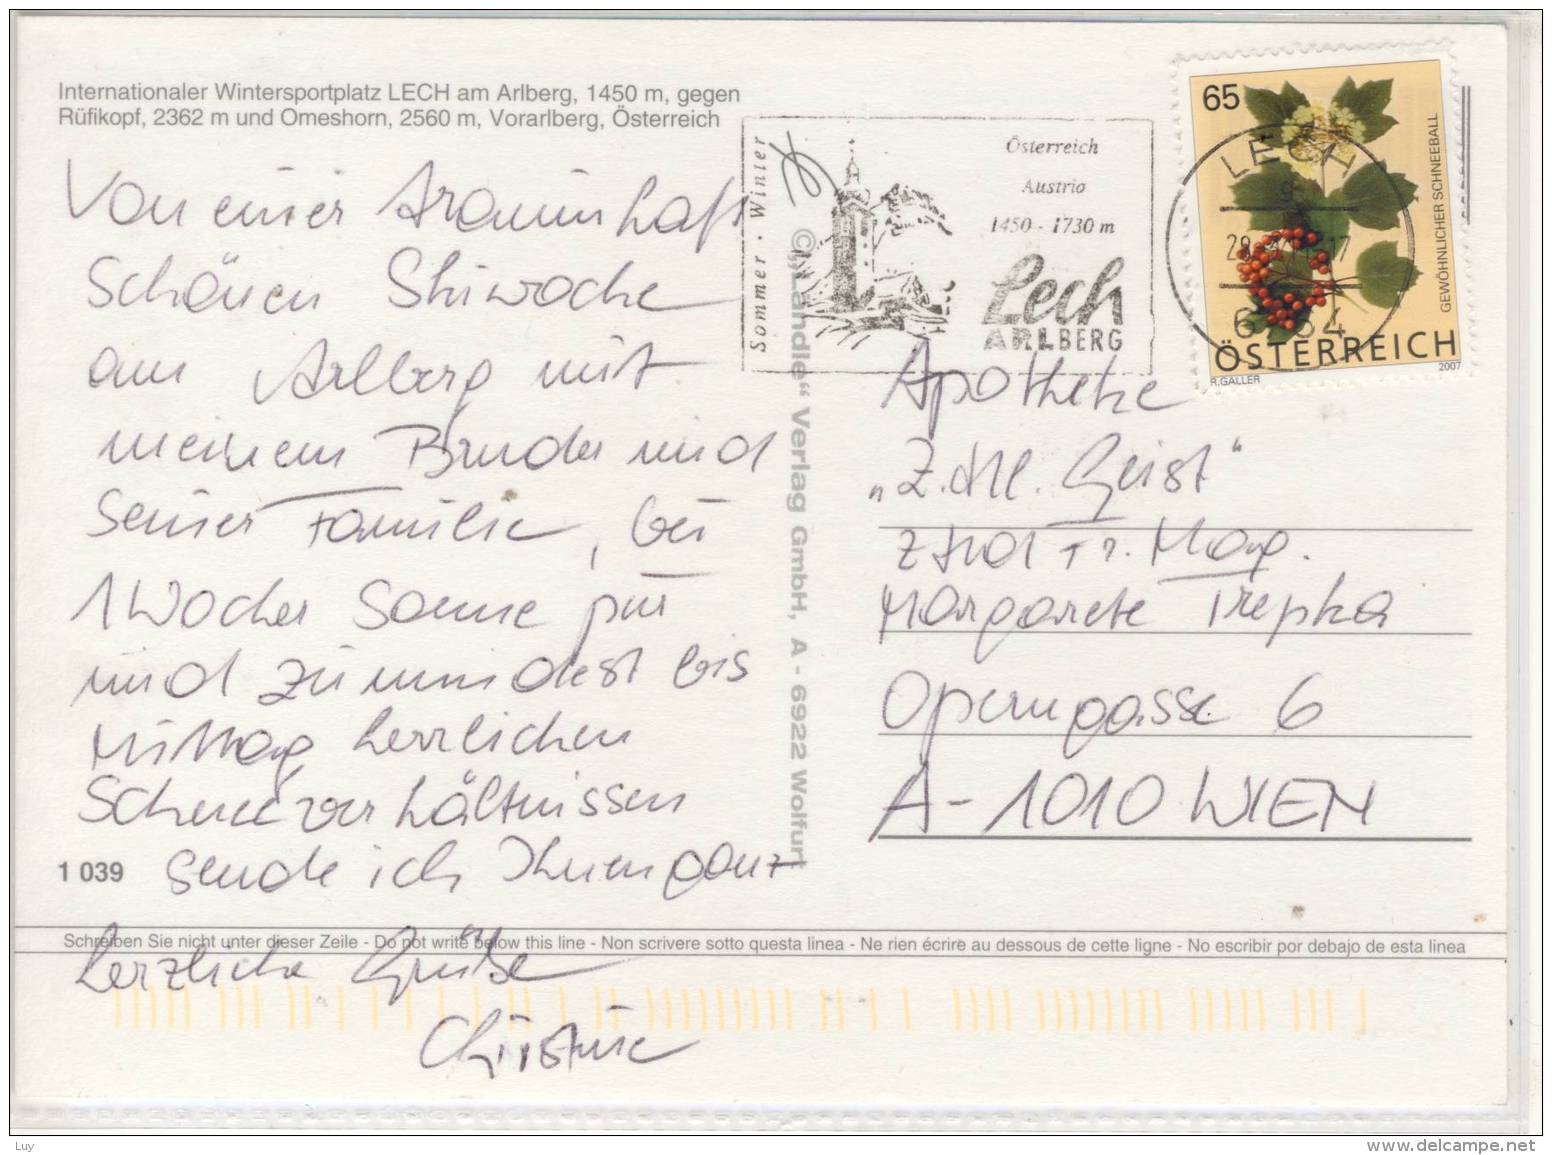 Internationaler Wintersportplatz LECH am Arlberg, 1450 m, gegen
Rüfikopf, 2362 m und Omeshorn, 2560 m, Vorarlberg, Österreich
Von einer traumhaft
schönen Skiwoche
am Arlberg mit
meinem Bruder und
seiner Familie, bei
1 Woche Sonne pur
und zumindest bis
Mittag herrlichen
Schneeverhältnissen
1 039
sende ich Ihnen ganz
herzliche Grüße
Christine
Schreiben Sie nicht unter dieser Zeile - Do not write below this line - Non scrivere sotto questa linea - Ne rien écrire au dessous de cette ligne - No escribir por debajo de esta linea
©„Ländle“ Verlag GmbH, A - 6922 Wolfurt
Sommer · Winter
Österreich
Austria
1450 - 1730 m
Lech
ARLBERG
65
LECH
GEWÖHNLICHER SCHNEEBALL
ÖSTERREICH
R.GALLER
2007
Apotheke
„Z. Hl. Geist“
Fr. Mag.
Margarete Trepka
Operngasse 6
A-1010 WIEN
Luy
www.delcampe.net